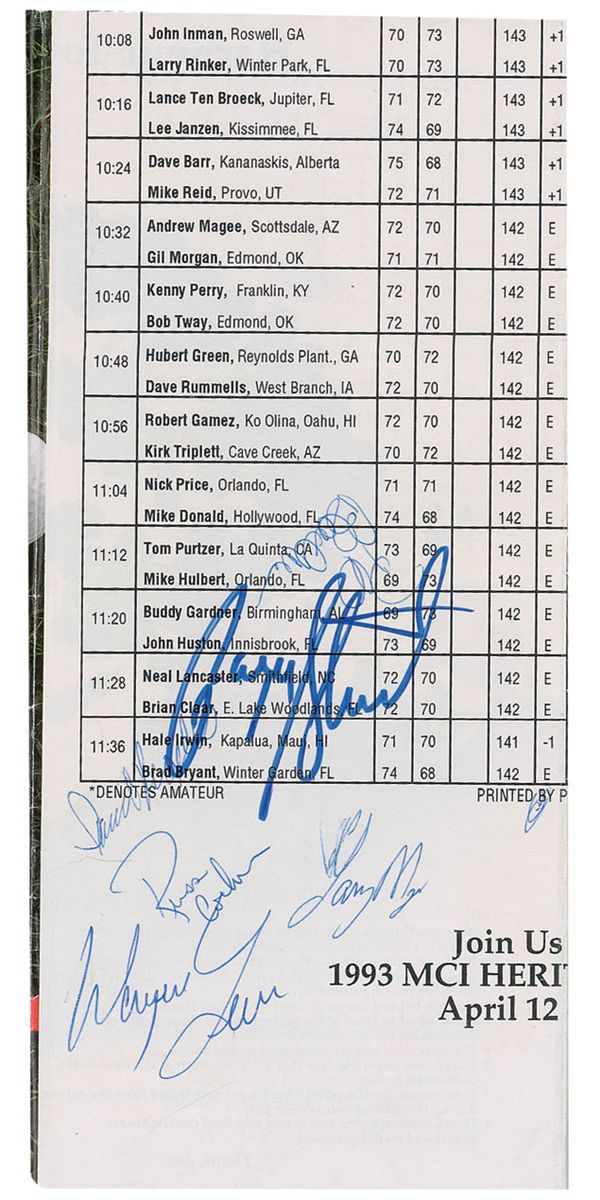 10:08 John Inman, Roswell, GA 70 73 143 +1
Larry Rinker, Winter Park, FL 70 73 143 +1
10:16 Lance Ten Broeck, Jupiter, FL 71 72 143 +1
Lee Janzen, Kissimmee, FL 74 69 143 +1
10:24 Dave Barr, Kananaskis, Alberta 75 68 143 +1
Mike Reid, Provo, UT 72 71 143 +1
10:32 Andrew Magee, Scottsdale, AZ 72 70 142 E
Gil Morgan, Edmond, OK 71 71 142 E
10:40 Kenny Perry, Franklin, KY 72 70 142 E
Bob Tway, Edmond, OK 72 70 142 E
10:48 Hubert Green, Reynolds Plant., GA 70 72 142 E
Dave Rummells, West Branch, IA 72 70 142 E
10:56 Robert Gamez, Ko Olina, Oahu, HI 72 70 142 E
Kirk Triplett, Cave Creek, AZ 70 72 142 E
11:04 Nick Price, Orlando, FL 71 71 142 E
Mike Donald, Hollywood, FL 74 68 142 E
11:12 Tom Purtzer, La Quinta, CA 73 69 142 E
Mike Hulbert, Orlando, FL 69 73 142 E
11:20 Buddy Gardner, Birmingham, AL 69 73 142 E
John Huston, Innisbrook, FL 73 69 142 E
11:28 Neal Lancaster, Smithfield, NC 72 70 142 E
Brian Claar, E. Lake Woodlands, FL 72 70 142 E
11:36 Hale Irwin, Kapalua, Maui, HI 71 70 141 -1
Brad Bryant, Winter Garden, FL 74 68 142 E
*DENOTES AMATEUR PRINTED BY P
Russ
Cochran
Wayne
Levi
Join Us
1993 MCI HERIT
April 12